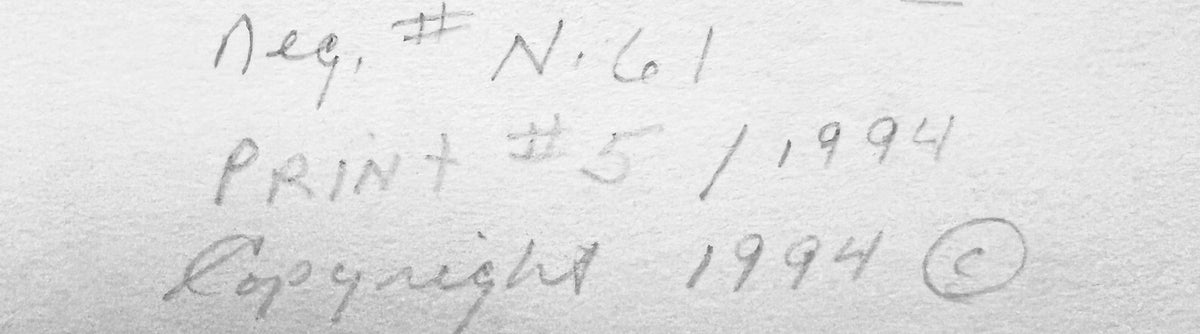 Neg. # N.61
PRINT #5 / 1994
Copyright 1994 ©